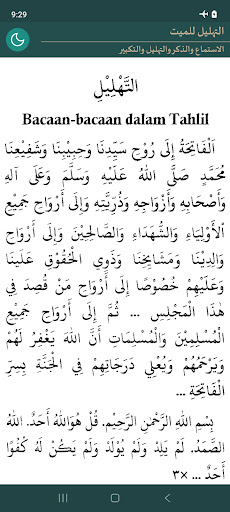 9:29
التهليل للميت
الاستماع والذكر والتهليل والتكبير
التَّهْلِيْلِ
Bacaan-bacaan dalam Tahlil
اَلْفَاتِحَةُ إِلَى رُوْحِ سَيِّدِنَا وَحَبِيْبِنَا وَشَفِيْعِنَا
مُحَمَّدٍ صَلَّى اللهُ عَلَيْهِ وَسَلَّمَ وَعَلَى آلِهِ
وَأَصْحَابِهِ وَأَزْوَاجِهِ وَذُرِّيَّتِهِ وَإِلَى أَرْوَاحِ جَمِيْعِ
اْلأَوْلِيَاءِ وَالشُّهَدَاءِ وَالصَّالِحِيْنَ وَإِلَى أَرْوَاحِ
وَالِدِيْنَا وَمَشَايِخِنَا وَذَوِي الْحُقُوْقِ عَلَيْنَا
وَعَلَيْهِمْ خُصُوْصًا إِلَى أَرْوَاحِ مَنْ قَصِدَ فِي
هٰذَا الْمَجْلِسِ ... ثُمَّ إِلَى أَرْوَاحِ جَمِيْعِ
الْمُسْلِمِيْنَ وَالْمُسْلِمَاتِ أَنَّ اللهَ يَغْفِرُ لَهُمْ
وَيَرْحَمُهُمْ وَيُعْلِي دَرَجَاتِهِمْ فِي الْجَنَّةِ بِسِرِّ
الْفَاتِحَةِ ...
بِسْمِ اللهِ الرَّحْمٰنِ الرَّحِيْمِ. قُلْ هُوَاللهُ أَحَدٌ. اَللهُ
الصَّمَدُ. لَمْ يَلِدْ وَلَمْ يُوْلَدْ وَلَمْ يَكُنْ لَهُ كُفُوًا
أَحَدٌ ... ×٣